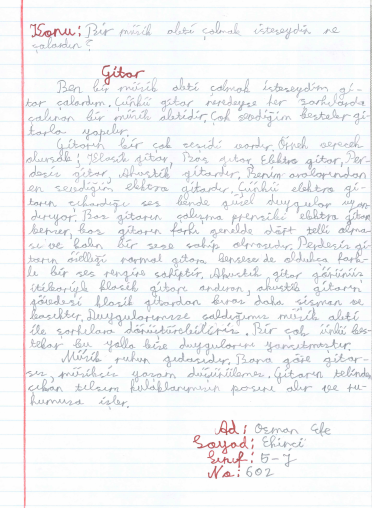 Konu: Bir müzik aleti çalmak isteseydin ne
çalardın?
Gitar
Ben bir müzik aleti çalmak isteseydim gi-
tar çalardım. Çünkü gitar neredeyse her şarkılarda
çalınan bir müzik aletidir. Çok sevdiğim besteler gi-
tarla yapılır.
Gitarın bir çok çeşidi vardır. Örnek verecek
olursak; Klasik gitar, Bas gitar, Elektro gitar, Per-
desiz gitar, Akustik gitardır. Benim aralarından
en sevdiğim elektro gitardır. Çünkü elektro gi-
tarın çıkardığı ses bende güzel duygular uyan
dırıyor. Bas gitarın çalışma prensibi elektro gitara
benzer, bas gitarın farkı genelde dört telli olma-
sı ve kalın bir sese sahip olmasıdır. Perdesiz gi-
tarın özelliği normal gitara benzese de oldukça fark-
lı bir ses rengine sahiptir. Akustik gitar görünüş
itibariyle klasik gitarı andırır, akustik gitarın
gövdesi klasik gitardan biraz daha şişman ve
basıktır. Duygularımızı saldığımız müzik aleti
ile şarkılara dönüştürebiliriz. Bir çok ünlü bes-
tekar bu yolla bize duygularını yansıtmıştır.
Müzik ruhun gıdasıdır. Bana göre gitar-
sız, müziksiz yaşam düşünülemez. Gitarın telinden
çıkan tılsım kulaklarımızın pasını alır ve ru-
humuza işler.
Ad: Osman Efe
Soyad: Ekinci
Sınıf: 5-J
No: 602